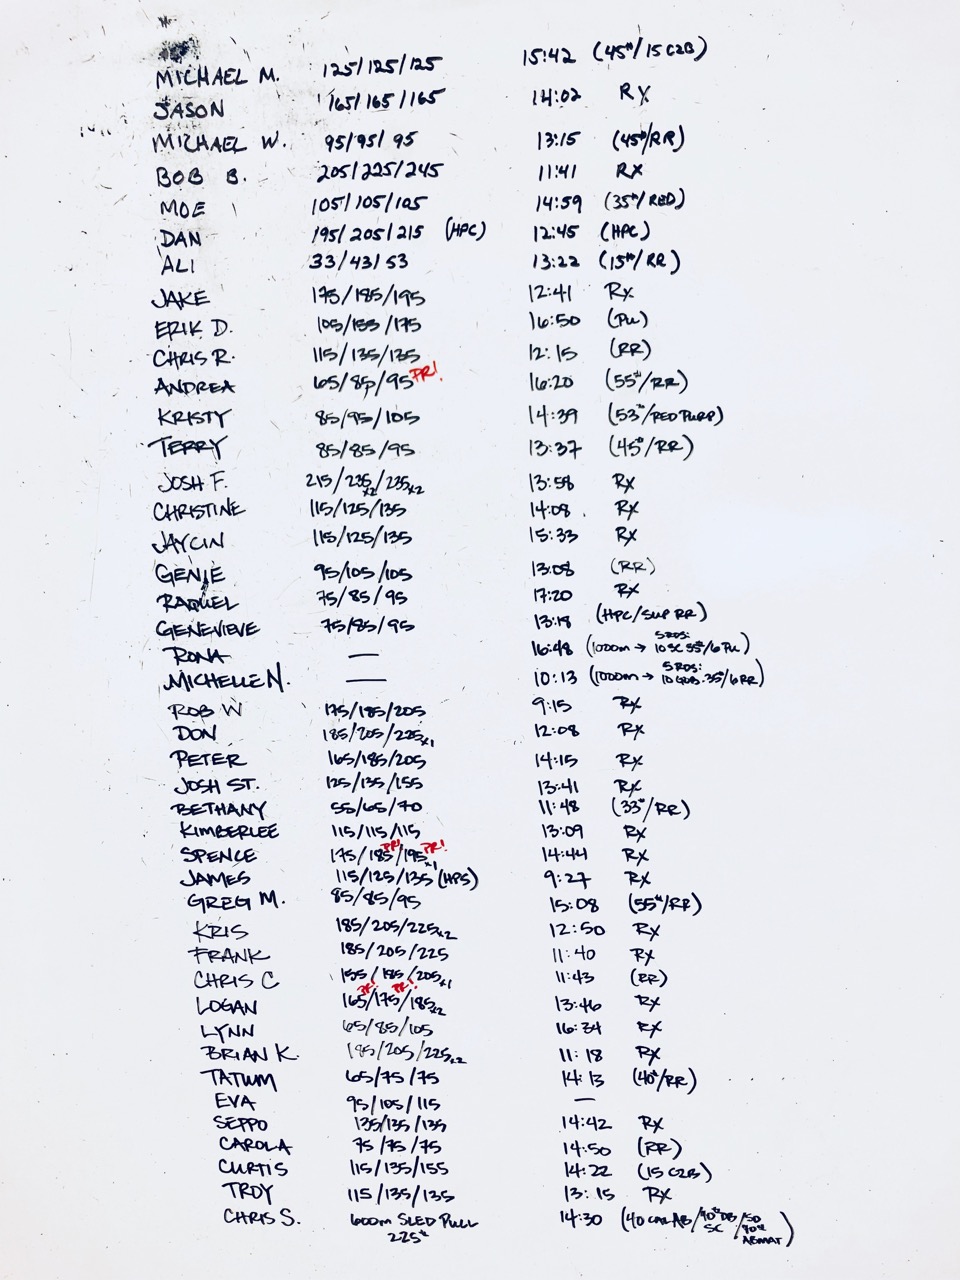 MICHAEL M. 125/125/125 15:42 (45#/15 C2B)
JASON 165/165/165 14:02 RX
MICHAEL W. 95/95/95 13:15 (45#/RR)
BOB B. 205/225/245 11:41 RX
MOE 105/105/105 14:59 (35#/RED)
DAN 195/205/215 (HPC) 12:45 (HPC)
ALI 33/43/53 13:22 (15#/RR)
JAKE 175/185/195 12:41 Rx
ERIK D. 105/155/175 16:50 (PU)
CHRIS R. 115/135/135 12:15 (RR)
ANDREA 65/85/95 PR! 16:20 (55#/RR)
KRISTY 85/95/105 14:39 (53#/RED PURP)
TERRY 85/85/95 13:37 (45#/RR)
JOSH F. 215/235x2/235x2 13:58 Rx
CHRISTINE 115/125/135 14:08 Rx
JAYCIN 115/125/135 15:33 Rx
GENIE 95/105/105 13:08 (RR)
RAQUEL 75/85/95 17:20 Rx
GENEVIEVE 75/85/95 13:18 (HPC/SUP RR)
RONA — 16:48 (1000m → 5 RDS: 10 SC 35#/6 PU)
MICHELLE N. — 10:13 (1000m → 5 RDS: 35#/6 RR)
ROB W 175/185/205 9:15 Rx
DON 185/205/225x1 12:08 Rx
PETER 165/185/205 14:15 Rx
JOSH ST. 125/135/155 13:41 Rx
BETHANY 55/65/70 11:48 (33#/RR)
KIMBERLEE 115/115/115 13:09 Rx
SPENCE 175/185 PR!/195x1 PR! 14:44 Rx
JAMES 115/125/135 (HPS) 9:27 Rx
GREG M. 85/85/95 15:08 (55#/RR)
KRIS 185/205/225x2 12:50 Rx
FRANK 185/205/225 11:40 Rx
CHRIS C 155/185/205x1 11:43 (RR)
LOGAN 165 PR!/175 PR!/185x2 13:46 Rx
LYNN 65/85/105 16:34 Rx
BRIAN K. 185/205/225x2 11:18 Rx
TATUM 65/75/75 14:13 (40#/RR)
EVA 95/105/115 —
SEPPO 135/135/135 14:42 Rx
CAROLA 75/75/75 14:50 (RR)
CURTIS 115/135/155 14:22 (15 C2B)
TROY 115/135/135 13:15 Rx
CHRIS S. 600m SLED PULL 225# 14:30 (40 CAL AB/ DB SC/50 ABMAT)